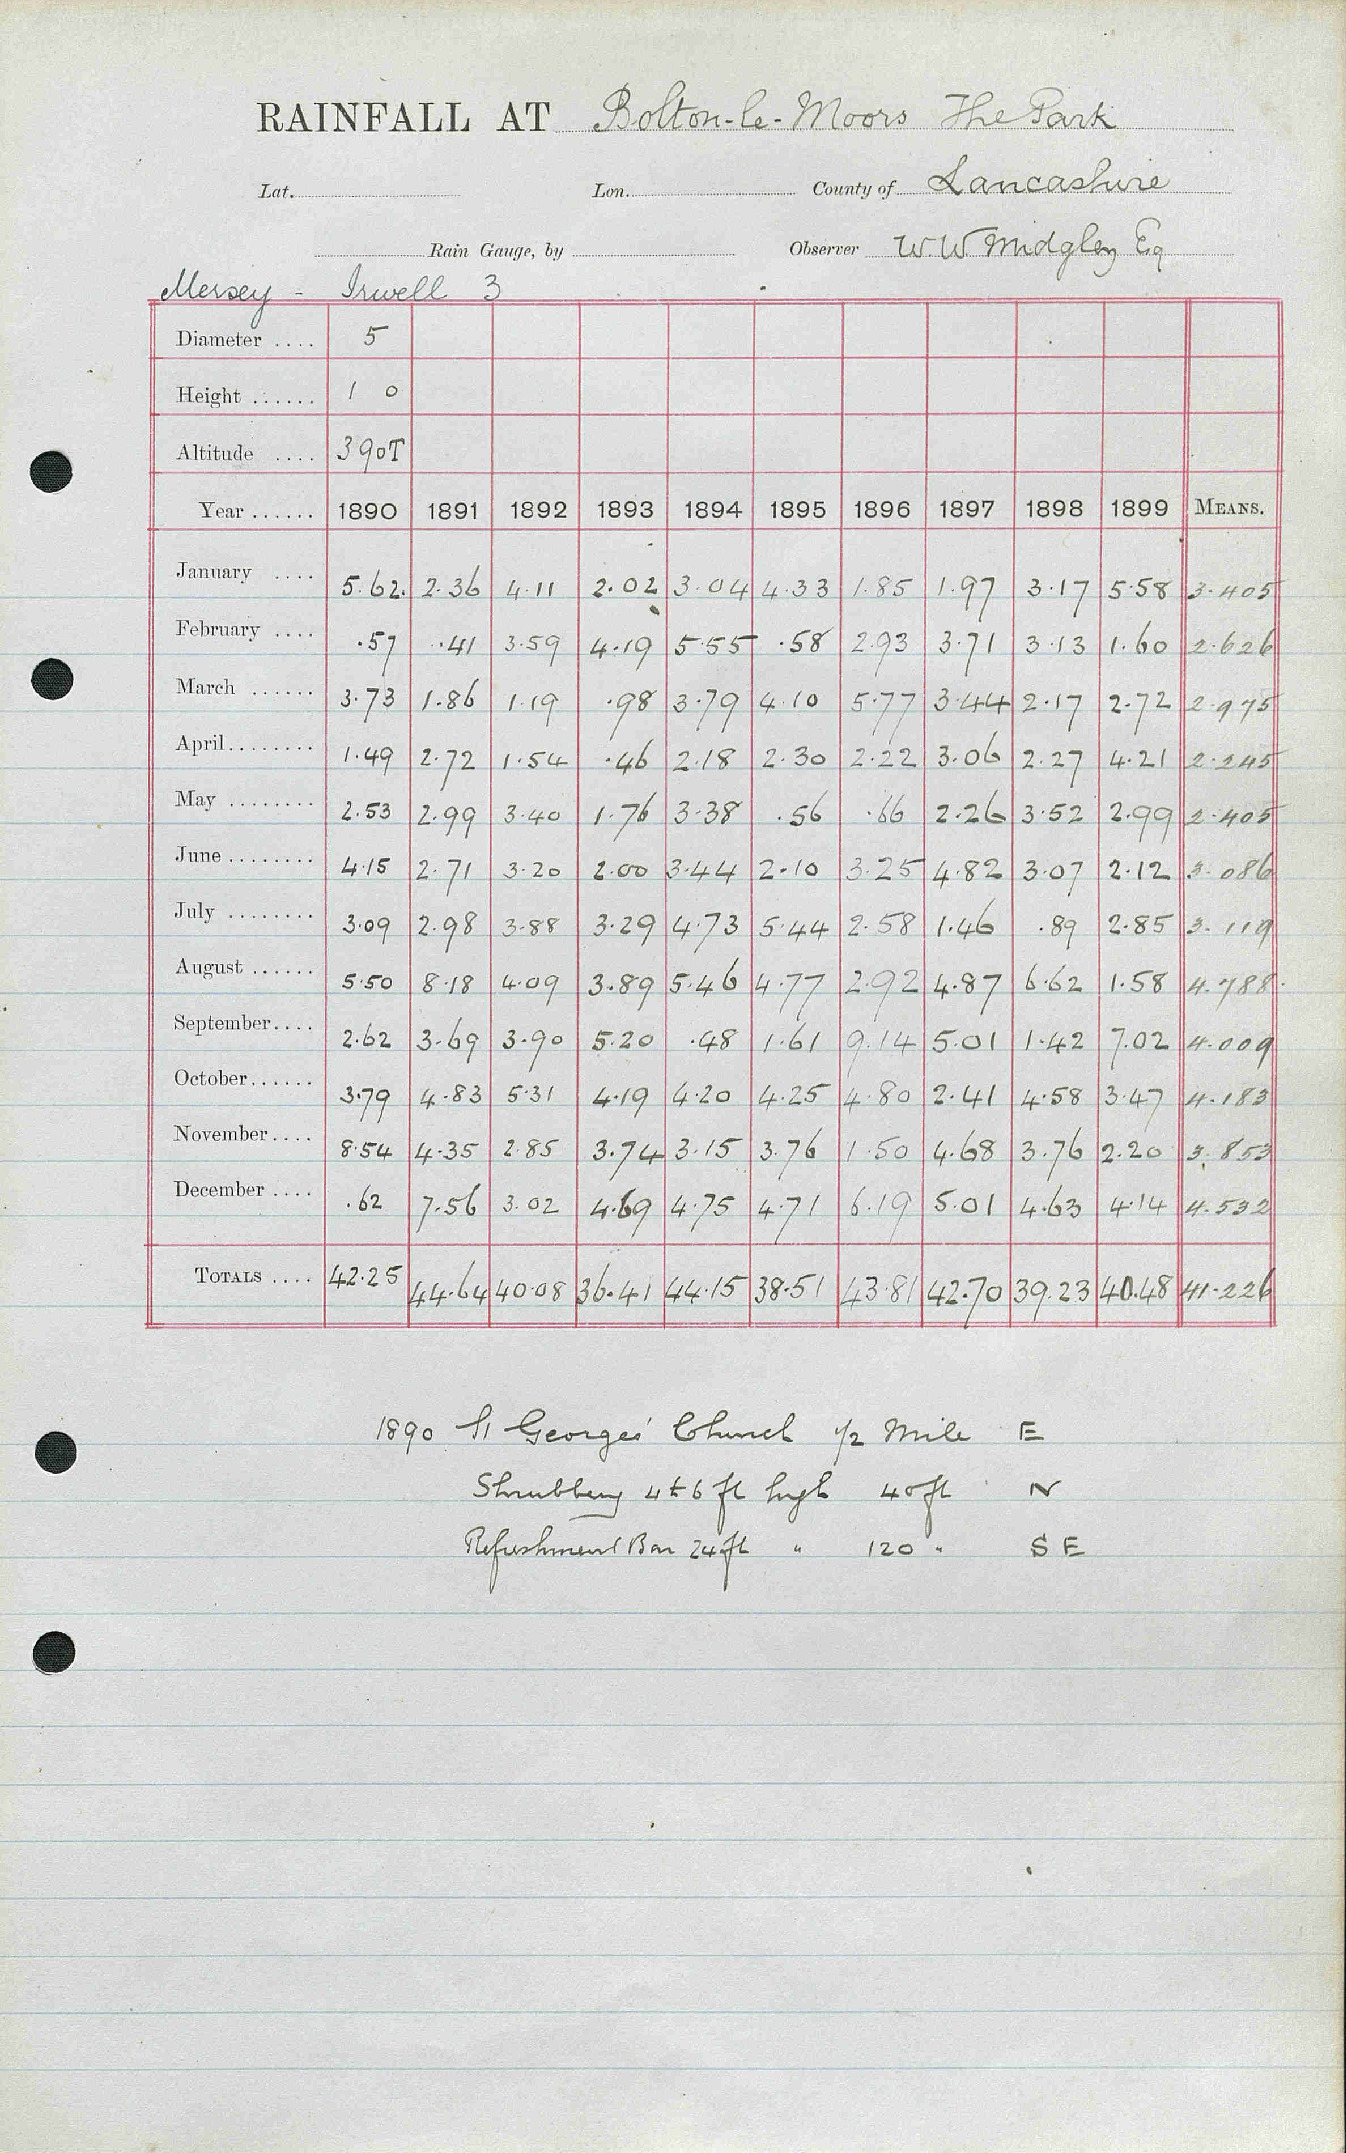 RAINFALL AT Bolton-le-Moors The Park
Lat. Lon. County of Lancashire
Rain Gauge, by Observer W.W. Midgley Eq
Mersey - Irwell 3
Diameter .... 5
Height ...... 1 0
Altitude .... 390T
Year ...... 1890 1891 1892 1893 1894 1895 1896 1897 1898 1899 MEANS.
January .... 5.62. 2.36 4.11 2.02 3.04 4.33 1.85 1.97 3.17 5.58 3.405
February .... .57 .41 3.59 4.19 5.55 .58 2.93 3.71 3.13 1.60 2.626
March ...... 3.73 1.86 1.19 .98 3.79 4.10 5.77 3.44 2.17 2.72 2.975
April........ 1.49 2.72 1.54 .46 2.18 2.30 2.22 3.06 2.27 4.21 2.245
May ........ 2.53 2.99 3.40 1.76 3.38 .56 .66 2.26 3.52 2.99 2.405
June ........ 4.15 2.71 3.20 2.00 3.44 2.10 3.25 4.82 3.07 2.12 3.086
July ........ 3.09 2.98 3.88 3.29 4.73 5.44 2.58 1.46 .89 2.85 3.119
August ...... 5.50 8.18 4.09 3.89 5.46 4.77 2.92 4.87 6.62 1.58 4.788
September.... 2.62 3.69 3.90 5.20 .48 1.61 9.14 5.01 1.42 7.02 4.009
October...... 3.79 4.83 5.31 4.19 4.20 4.25 4.80 2.41 4.58 3.47 4.183
November.... 8.54 4.35 2.85 3.74 3.15 3.76 1.50 4.68 3.76 2.20 3.853
December .... .62 7.56 3.02 4.69 4.75 4.71 6.19 5.01 4.63 4.14 4.532
TOTALS .... 42.25 44.64 40.08 36.41 44.15 38.51 43.81 42.70 39.23 40.48 41.226
1890 St Georges' Church 1/2 Mile E
Shrubbery 4 to 6 ft high 40 ft N
Refreshment Bar 24 ft " 120 " S E